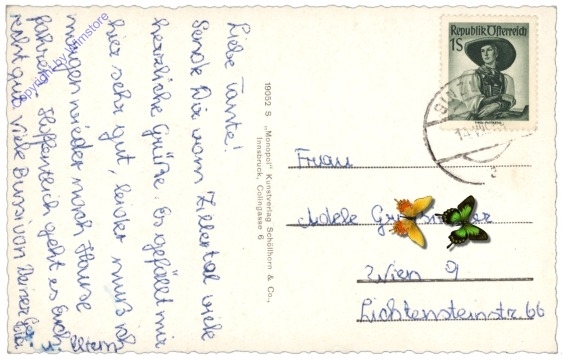 Liebe Tante!
Sende Dir vom Zillertal viele
herzliche Grüße. Es gefällt mir
hier sehr gut, leider muß ich
morgen wieder nach Hause
fahren. Hoffentlich geht es Euch
recht gut. Viele Bussi von Deiner
u. Eltern
19052 S „Monopol" Kunstverlag Schöllhorn & Co.,
Innsbruck, Colingasse 6
Republik Österreich
1S
Frau
Adele
Wien 9
Liechtensteinstr. 66
copyright by Wimstore